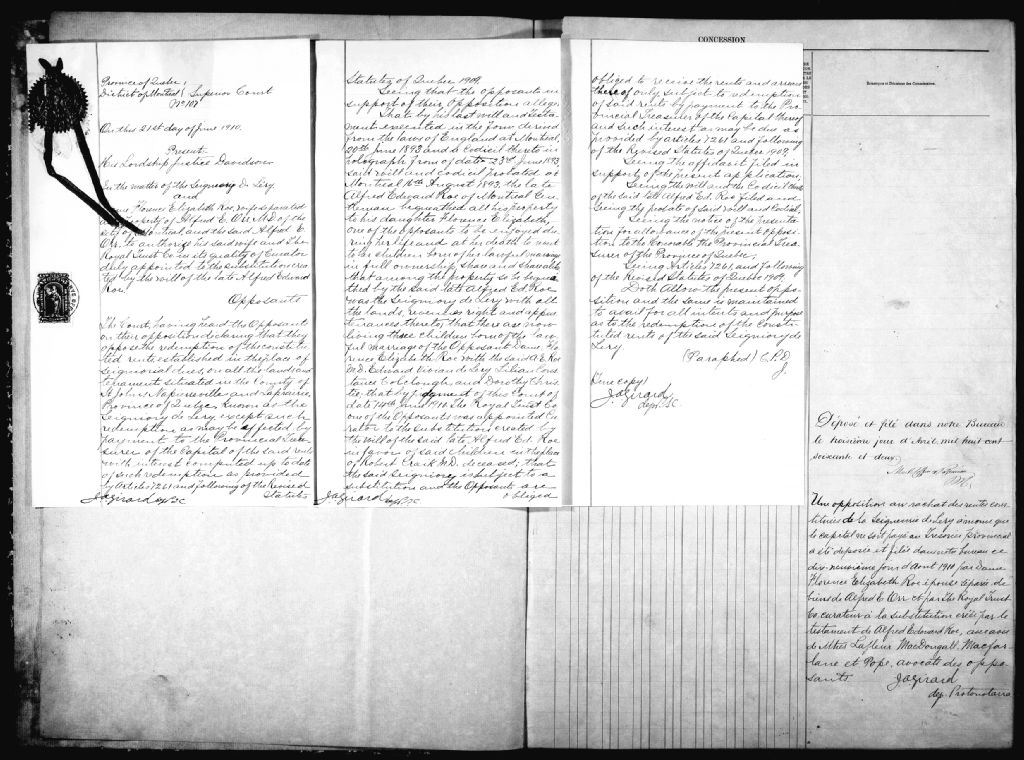 Province of Quebec,
District of Montreal } Superior Court
No 107
On this 21st day of June 1910.
Present:
His Lordship Justice Davidson
In the matter of the Seigniory De Lery
and
Florence Elizabeth Roe, wife separated
property of Alfred E. Orr M.D. of the
City of Montreal and the said Alfred E.
Orr to authorize his said wife and The
Royal Trust Co in its quality of Curator
duly appointed to the substitution crea-
ted by the will of the late Alfred Edward
Roe.
Opposants
The Court, having heard the Opposants
on their opposition declaring that they
oppose the redemption of the constitu-
ted rents established in the place of
seigniorial dues, on all the lands and
tenaments situated in the County of
St Johns, Napierville and Laprairie,
Province of Quebec, known as the
Seigniory de Lery, except such
redemption as may be effected by
payment to the Provincial Trea-
surer of the Capital of the said rents
with interest computed up to date
of such redemption as provided
by Articles 7261 and following of the Revised
Statutes
J.A. Girard dep. P.S.C.
Statutes of Quebec 1909,
Seeing that the opposants in
support of their Opposition allege:
That by his last will and testa-
ment executed in the form derived
from the laws of England at Montreal,
20th June 1893 and a Codicil thereto in
holograph from of date 23rd June 1893
said will and codicil probated at
Montreal 16th August 1893, the late
Alfred Edward Roe of Montreal Gen-
tleman bequeathed all his property
to his daughter Florence Elizabeth,
one of the opposants to be enjoyed du-
ring her life and at her death to vest
to her children born of her lawful marriage
in full ownership, share and share alike
that among the property so bequea-
thed by the said late Alfred Ed Roe
was the Seigniory de Lery with all
the lands, revenues right and appur-
tenances thereto, that there are now
living three children born of the law-
ful marriage of the Opposant Dame Flo-
rence Elizabeth Roe with the said A. E. Roe
M.D. Edward Vivian de Lery, Lilian Cons-
tance Colclough and Dorothy Chris-
tie; that by judgment of this Court of
date 14th June 1910 The Royal Trust Co
one of the Opposants was appointed Cu-
rator to the substitution created by
the will of the said late Alfred Ed. Roe
in favor of said children in the place
of Robert Craik M.D. deceased; that
the said Seigniory is subject to a
substitution and the Opposants are
obliged
J.A. Girard dep. P.S.C.
obliged to receive the rents and arrears
thereof only, subject to redemption
of said rents by payment to the Pro-
vincial Treasurer of the Capital thereof
and such interest as may be due as
provided by articles 7261 and following
of the Revised Statutes of Quebec 1909,
Seeing the affidavit filed in
support of the present application;
Seeing the will and the Codicil thereto
of the said late Alfred Ed. Roe filed and
Seeing the probate of said will and Codicil,
Seeing the notice of the presenta-
tion for allowance of the present opposi-
tion to the Comoth the Provincial Trea-
surer of the Province of Quebec,
Seeing Articles 7261 and following
of the Revised Statutes of Quebec 1909,
Doth Allow the present oppo-
sition and the same is maintained
to avail for all intents and purposes
as to the redemption of the Consti-
tuted rents of the said Seigniory de
Lery.
(Paraphed) C.P.D.
J.
(True copy)
J.A. Girard
dep. P.S.C.
CONCESSION
Remarques et Décisions des Commissaires.
Déposé et filé dans notre Bureau
le troisième jour d'Avril mil huit cent
soixante et deux.
Une opposition au rachat des rentes cons-
tituées de la Seigneurie de Lery à moins que
le capital ne soit payé au Trésorier provincial
a été déposée et filée dans notre bureau ce
dix-neuvième jour d'Aout 1910 par Dame
Florence Elizabeth Roe épouse séparée de
biens de Alfred E. Orr et par The Royal Trust
Co. curateur à la substitution créée par le
testament de Alfred Edouard Roe,
de Mtres Lafleur MacDougall, Macfar-
lane et Pope, avocats des oppo-
sants J.A. Girard
dep. Protonotaire